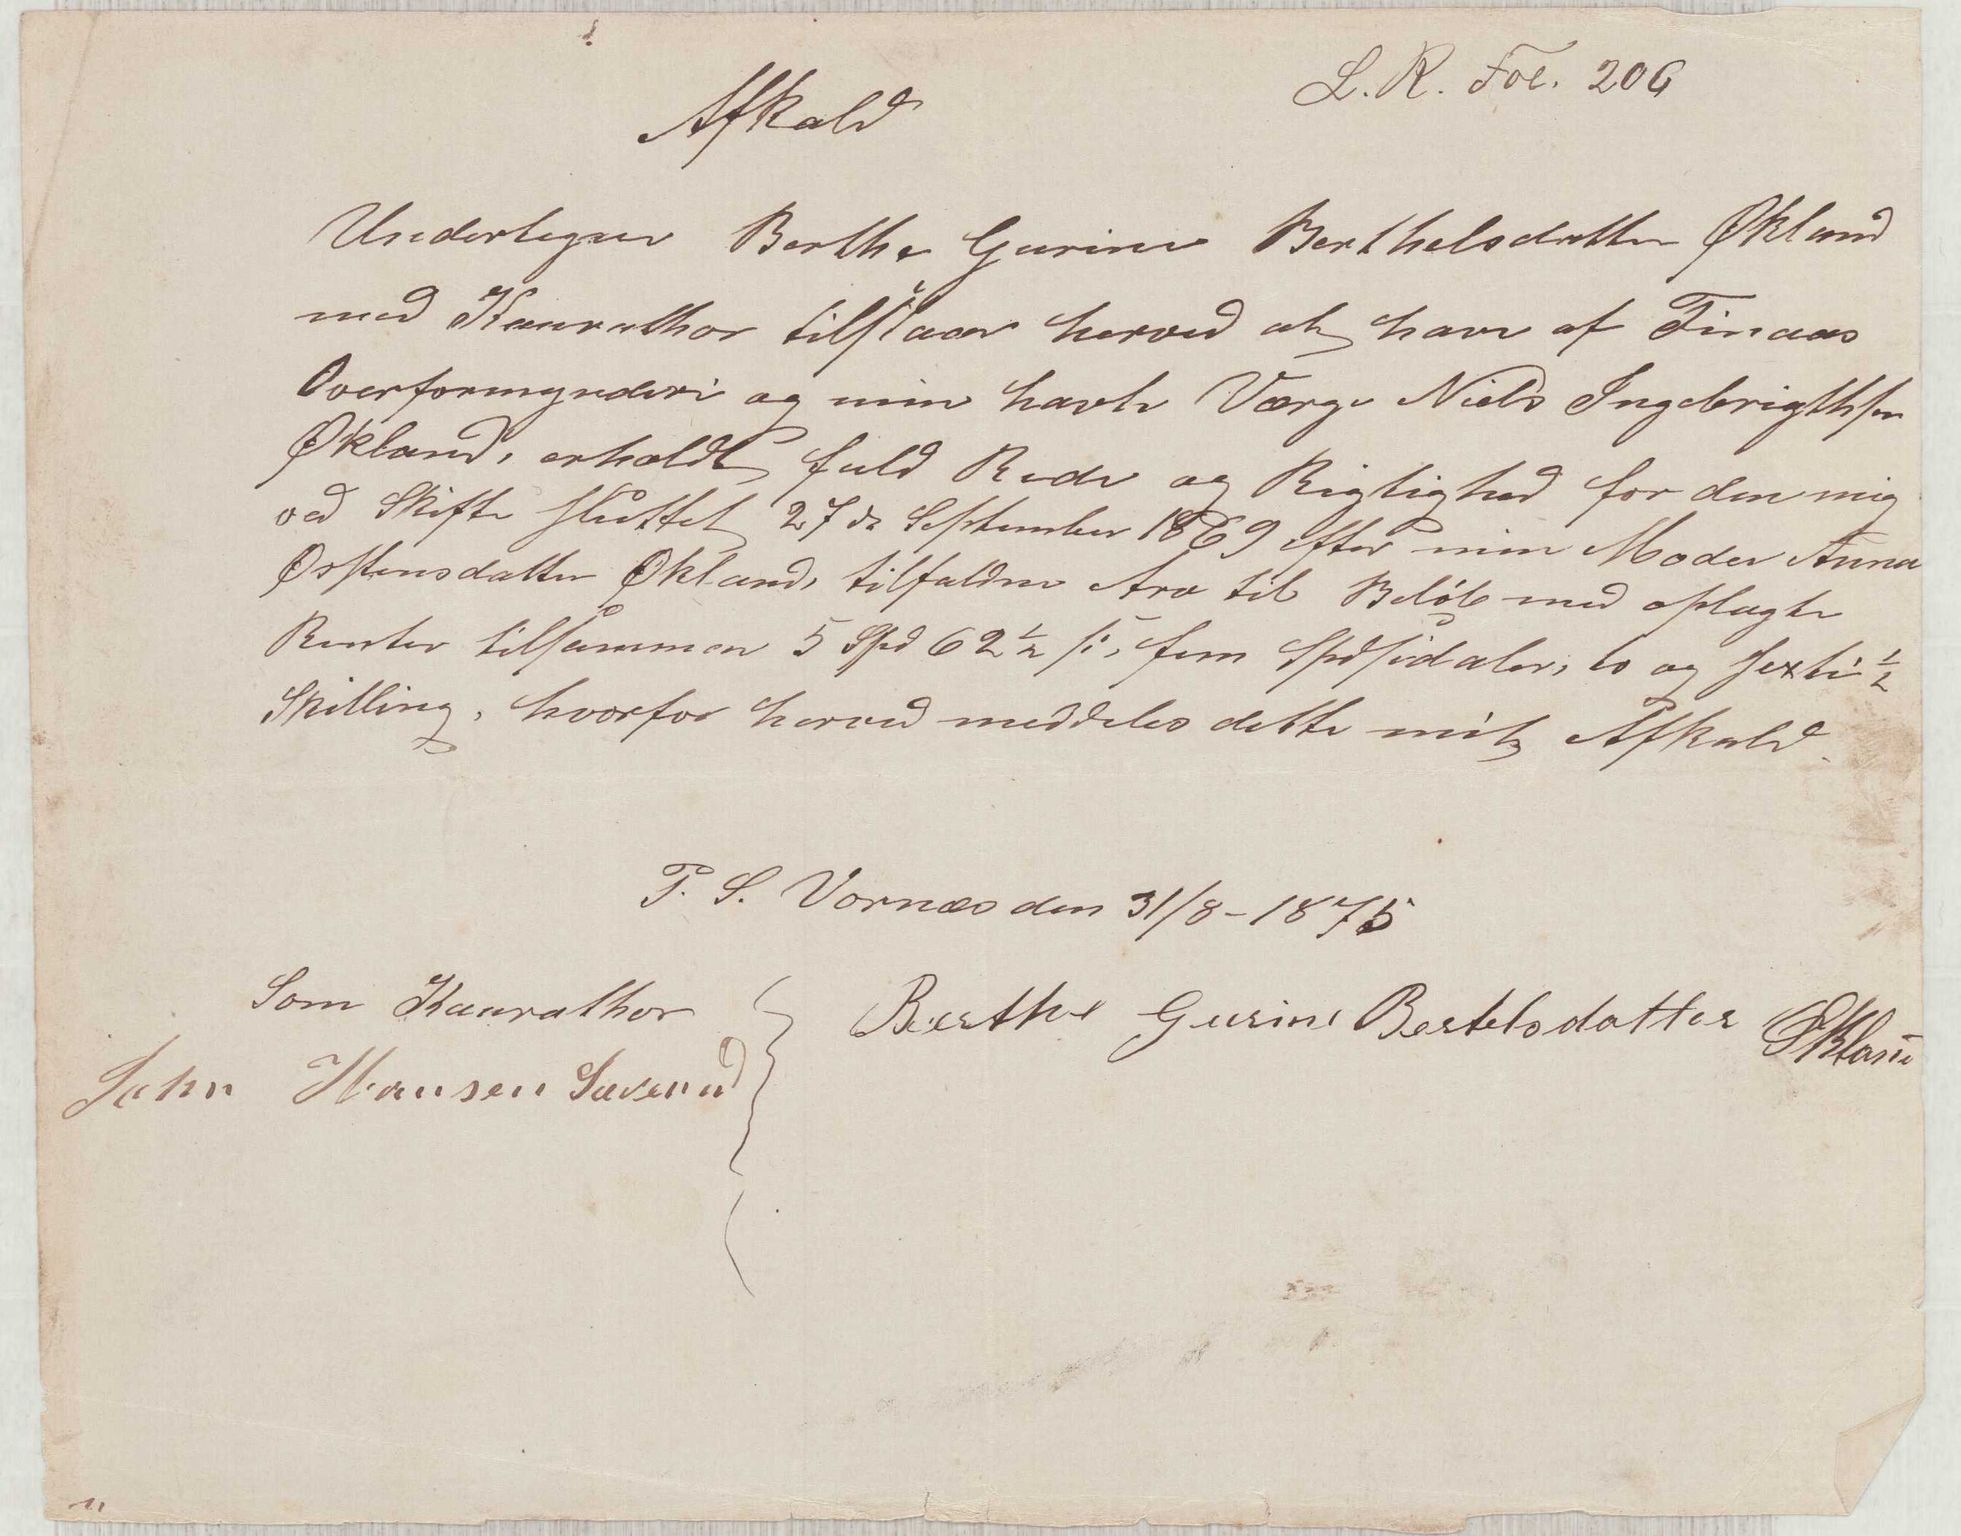 L. R. Fol. 206
Afkald
Undertegnede Berthe Gurine Berthelsdatter Økland
med Kaurathor tilstaar herved at have af Finaas
Overformynderi og min havte Værge Niels Ingebrigthsen
Økland, erholdt fuld Rede og Rigtighed for den mig
ved Skifte sluttet 27de September 1869 efter min Moder Anna
Østensdatter Økland, tilfaldne Arv til Beløb med oplagte
Renter tilsammen 5 Spd 62 1/2 s, fem Spesidaler, to og sexti 1/2
Skilling, hvorfor herved meddeles dette mit Afkald.
T. S. Vornæs den 31/8 - 1875
Som Kaurathor
Berthe Gurine Bertelsdatter Økland
John Hansen Sæverud